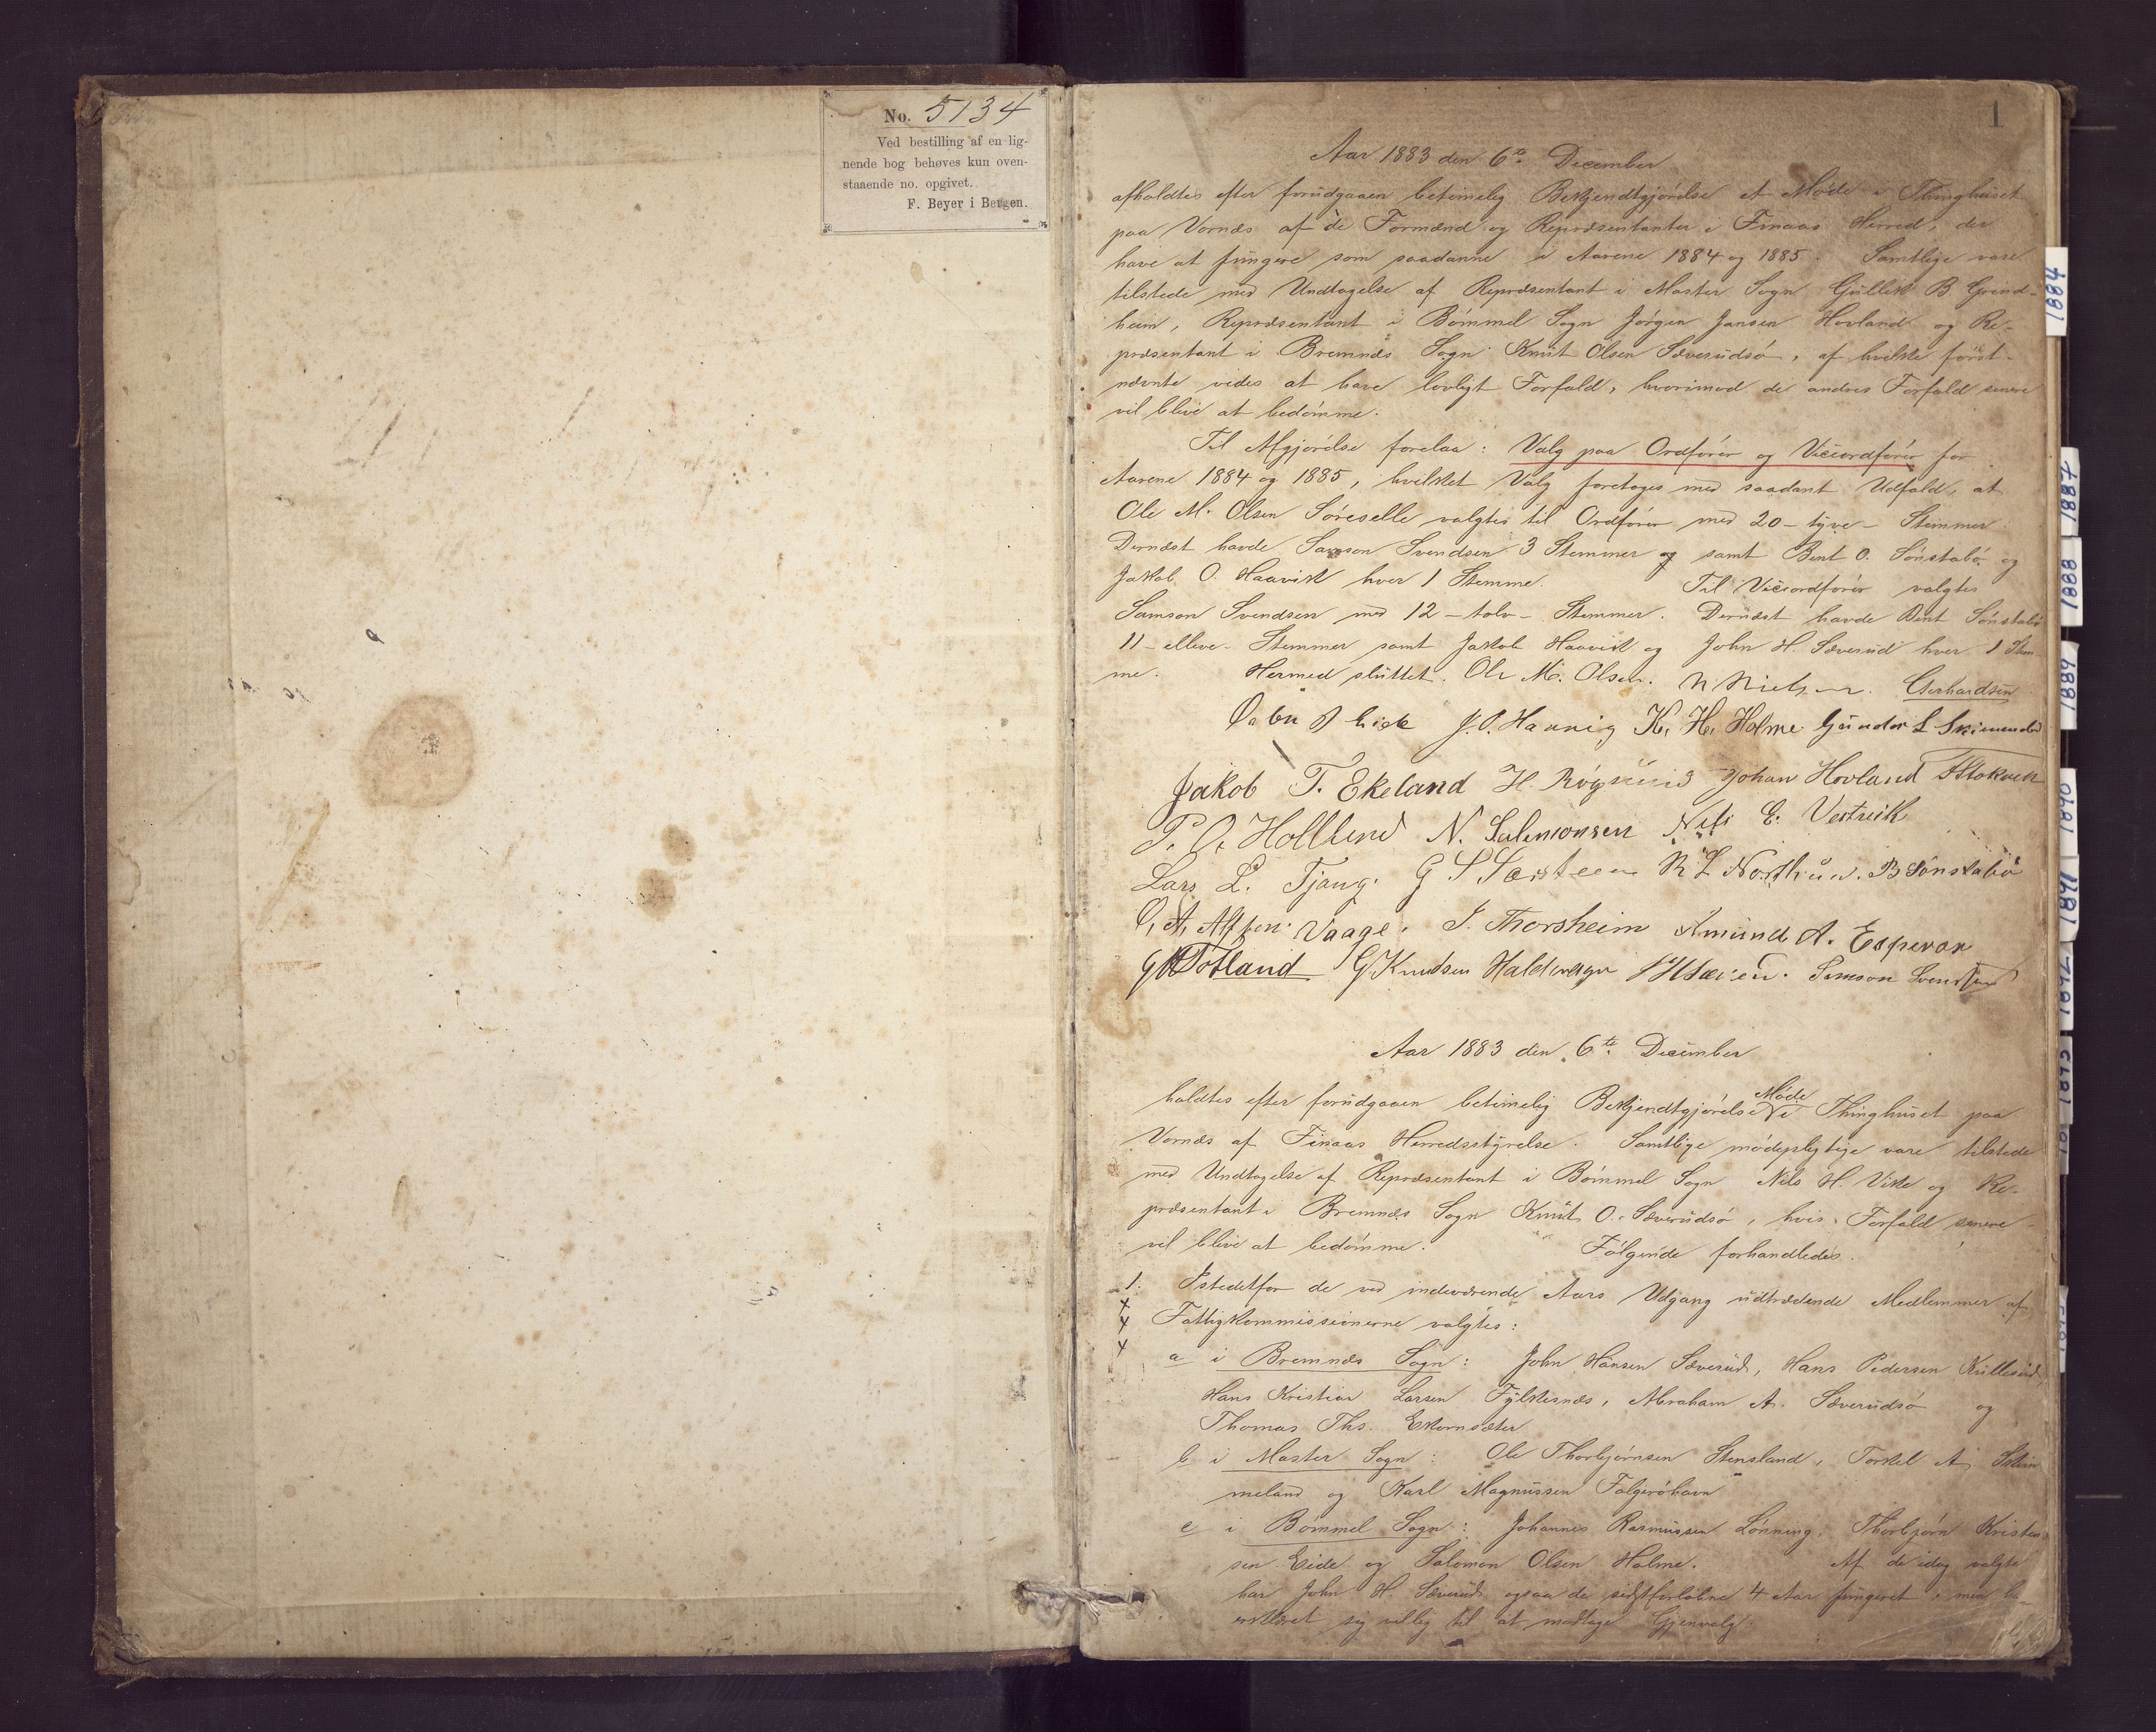 No. 5134
Ved bestilling af en lig-
nende bog behøves kun oven-
staaende no. opgivet.
F. Beyer i Bergen.
1
Aar 1883 den 6te December
afholdtes efter forudgaaen betimelig Bekjendtgjørelse et Møde i Thinghuset
paa Vornæs af de Formænd og Repræsentanter i Finaas Herred, der
have at fungere som saadanne i Aarene 1884 og 1885. Samtlige vare
tilstede med Undtagelse af Repræsentant i Moster Sogn Gullik B Grind-
heim, Repræsentant i Bømmel Sogn Jørgen Jansen Hovland og Re-
præsentant i Bremnæs Sogn Knut Olsen Sæverudsø, af hvilke først-
nævnte vides at have lovligt Forfald, hvorimod de andres Forfald senere
vil blive at bedømme.
Til Afgjørelse forelaa: Valg paa Ordfører og Viceordfører for
Aarene 1884 og 1885, hvilket Valg foretoges med saadant Udfald, at
Ole M. Olsen Søreselle valgtes til Ordfører med 20 - tyve - Stemmer.
Dernæst havde Samson Svendsen 3 Stemmer og samt Bent O. Sønstabø og
Jakob O. Haavik hver 1 Stemme. Til Viceordfører valgtes
Samson Svendsen med 12 - tolv - Stemmer. Dernæst havde Bent Sønstabø
11 - elleve - Stemmer samt Jakob Haavik og John H. Sæverud hver 1 Stem
me. Hermed sluttet. Ole M. Olsen. N Nielsen. Gerhardsen
J. O. Haavig K. H. Holme Gunder L
Jakob T. Ekeland H. Johan Hovland
P. O. N. Salemonsen E. Vestvik
Lars L. Tjong. G S R L B Sønstabø
O, A, Vaage. J. Thorsheim Amund A. Espevær
Totland G Knudsen Samson Svendsen
Aar 1883 den 6te December
holdtes efter forudgaaen betimelig Bekjendtgjørelse Møde i Thinghuset paa
Vornæs af Finaas Herredsstyrelse. Samtlige mødepligtige vare tilstede
med Undtagelse af Repræsentant i Bømmel Sogn Nils H. Vike og Re-
præsentant i Bremnæs Sogn Knut O. Sæverudsø, hvis Forfald senere
vil blive at bedømme. Følgende forhandledes.
1. Istedetfor de ved indeværende Aars Udgang udtrædende Medlemmer af
Fattigkommissionerne valgtes:
a i Bremnæs Sogn: John Hansen Sæverud, Hans Pedersen Kulleseid
Hans Kristian Larsen Fylkesnæs, Abraham A. Sæverudsø og
Thomas Ths. Ekornsæter
b i Moster Sogn: Ole Thorbjørnsen Stensland, Torkel A. Skim
meland og Karl Magnussen Folgerøhavn
c i Bømmel Sogn: Johannes Rasmussen Lønning, Thorbjørn Kristen
sen Eide og Salomon Olsen Holme. Af de idag valgte
har John H. Sæverud ogsaa de sidstforløbne 4 Aar fungeret, men he
erklæret sig villig til at modtage Gjenvalg.
1884
1887
1888
1889
1890
1891
1892
1893